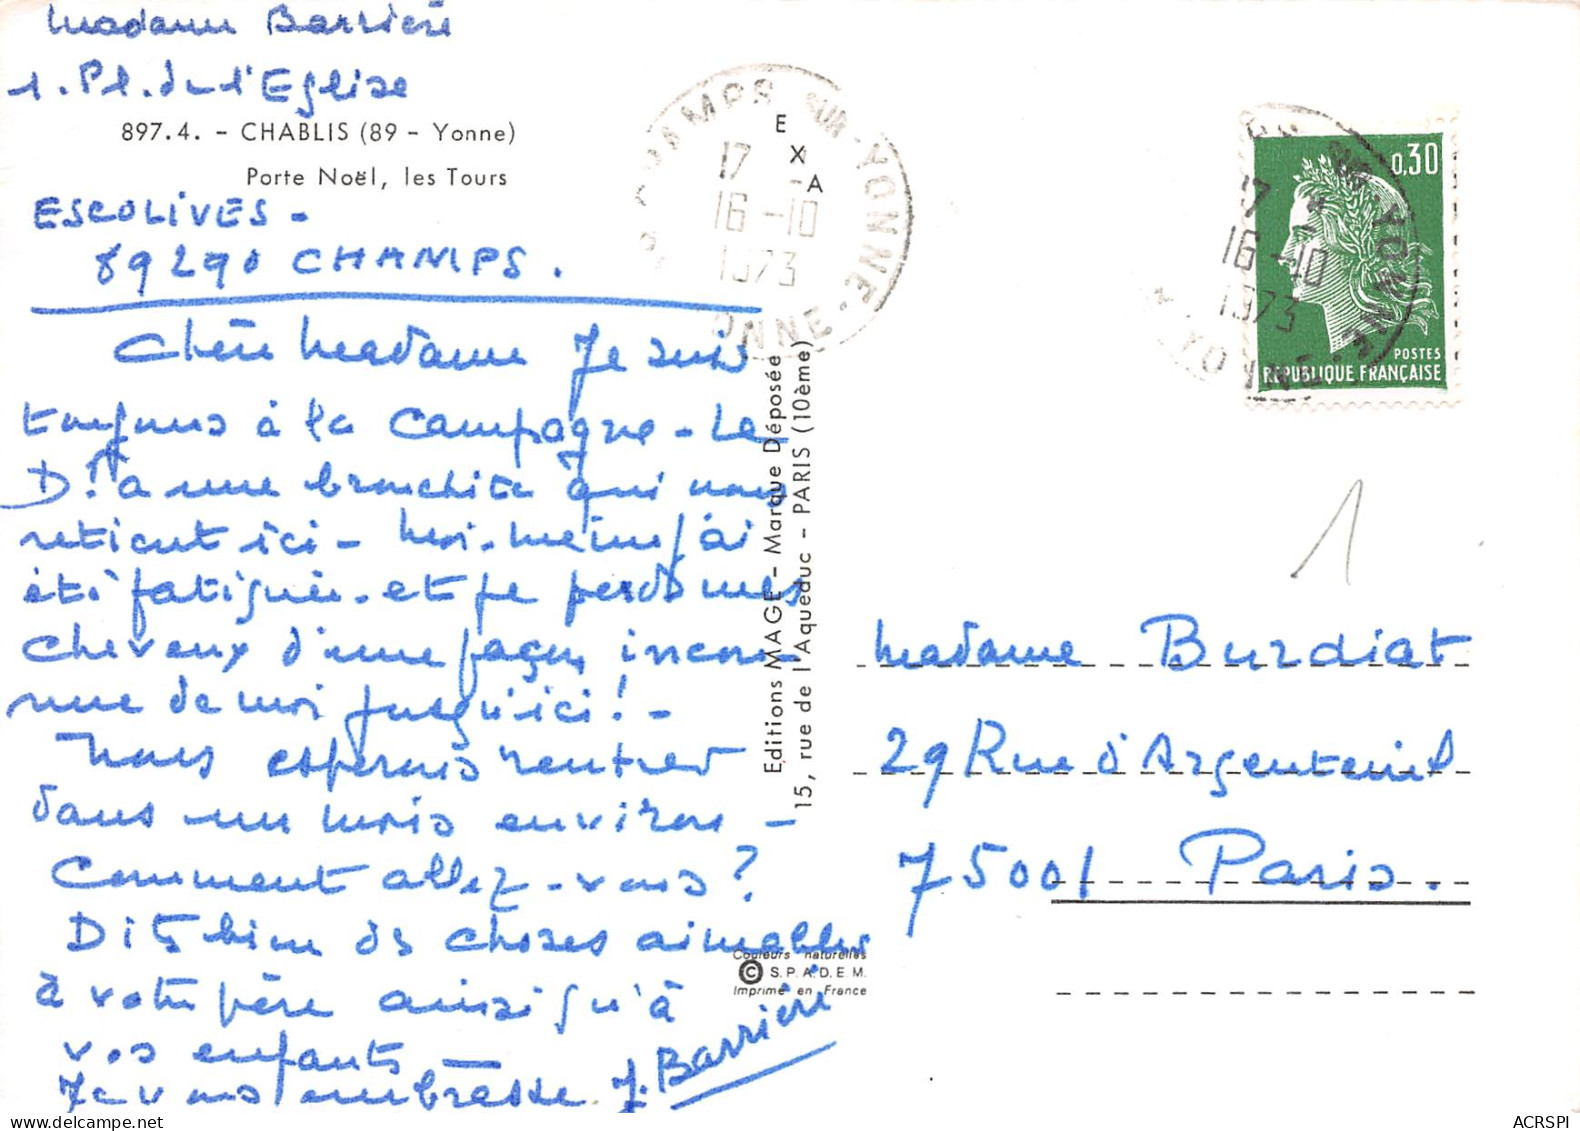 Madame Barrière
1. Pl. de l'Eglise
897.4. - CHABLIS (89 - Yonne)
Porte Noël, les Tours
ESCOLIVES -
89290 CHAMPS.
Chère Madame Je suis
toujours à la campagne - Le
Dr a une bronchite qui nous
retient ici - Moi-même j'ai
été fatiguée. et je perds mes
cheveux d'une façon incon-
nue de moi jusqu'ici ! -
Nous espérons rentrer
dans un mois environ -
Comment allez-vous ?
Dites bien des choses aimables
à votre père ainsi qu'à
vos enfants -
Je vous embrasse. J. Barrière
E
X
A
CHAMPS SUR YONNE
17
16-10
1973
YONNE
Editions MAGE - Marque Déposée
15, rue de l'Aqueduc - PARIS (10ème)
Couleurs naturelles
© S.P.A.D.E.M.
Imprimé en France
0,30
POSTES
REPUBLIQUE FRANÇAISE
SUR YONNE
17
16-10
1973
YONNE
1
Madame Burdiat
29 Rue d'Argenteuil
75001 Paris.
ACRSPI